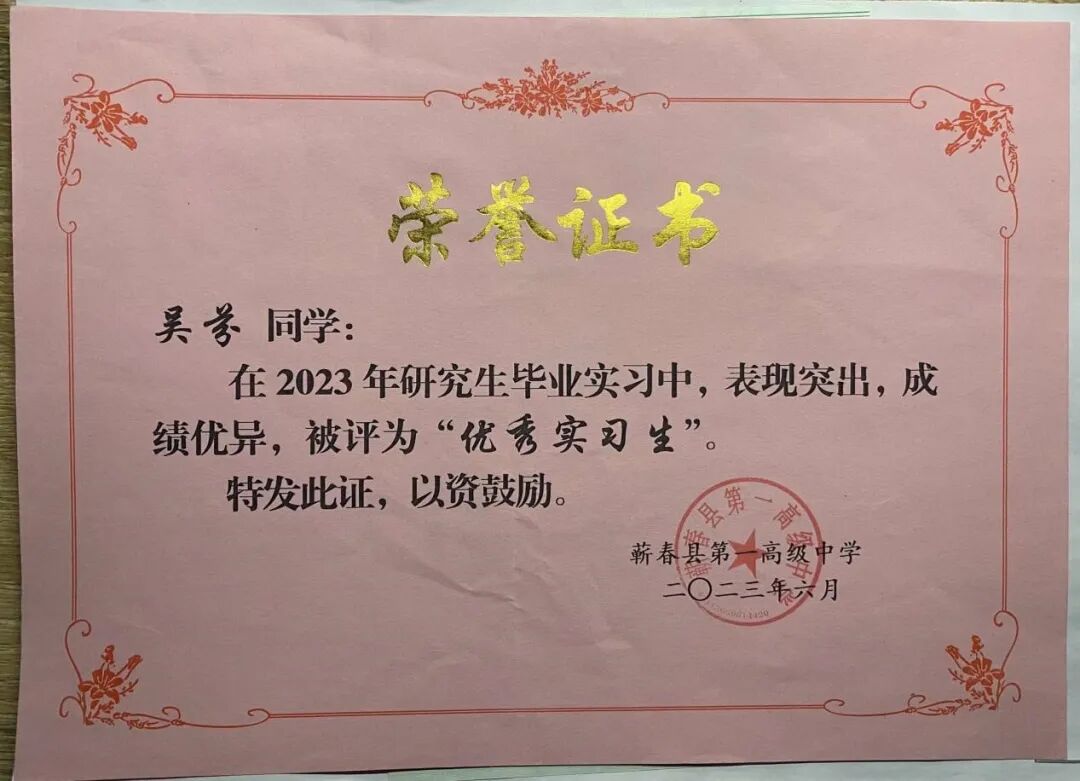 荣誉证书
吴芬 同学：
在 2023 年研究生毕业实习中，表现突出，成
绩优异，被评为“优秀实习生”。
特发此证，以资鼓励。
蕲春县第一高级中学
二〇二三年六月
蕲春县第一高级中学